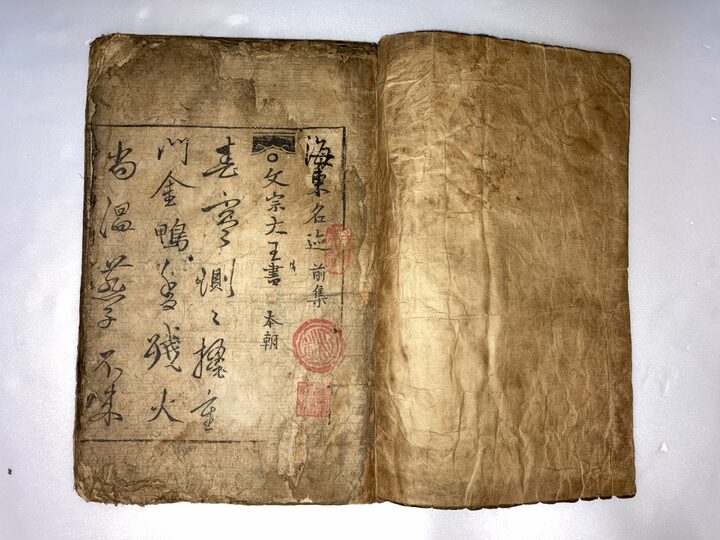 海東名迹 前集
○文宗大王書 本朝
春寒惻〻掩重
門金鴨香殘火
尚溫燕子不